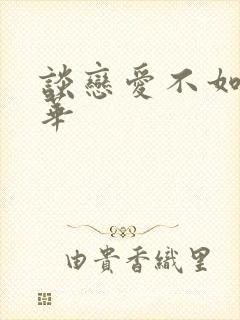 談戀愛不如
華
由貴香織里